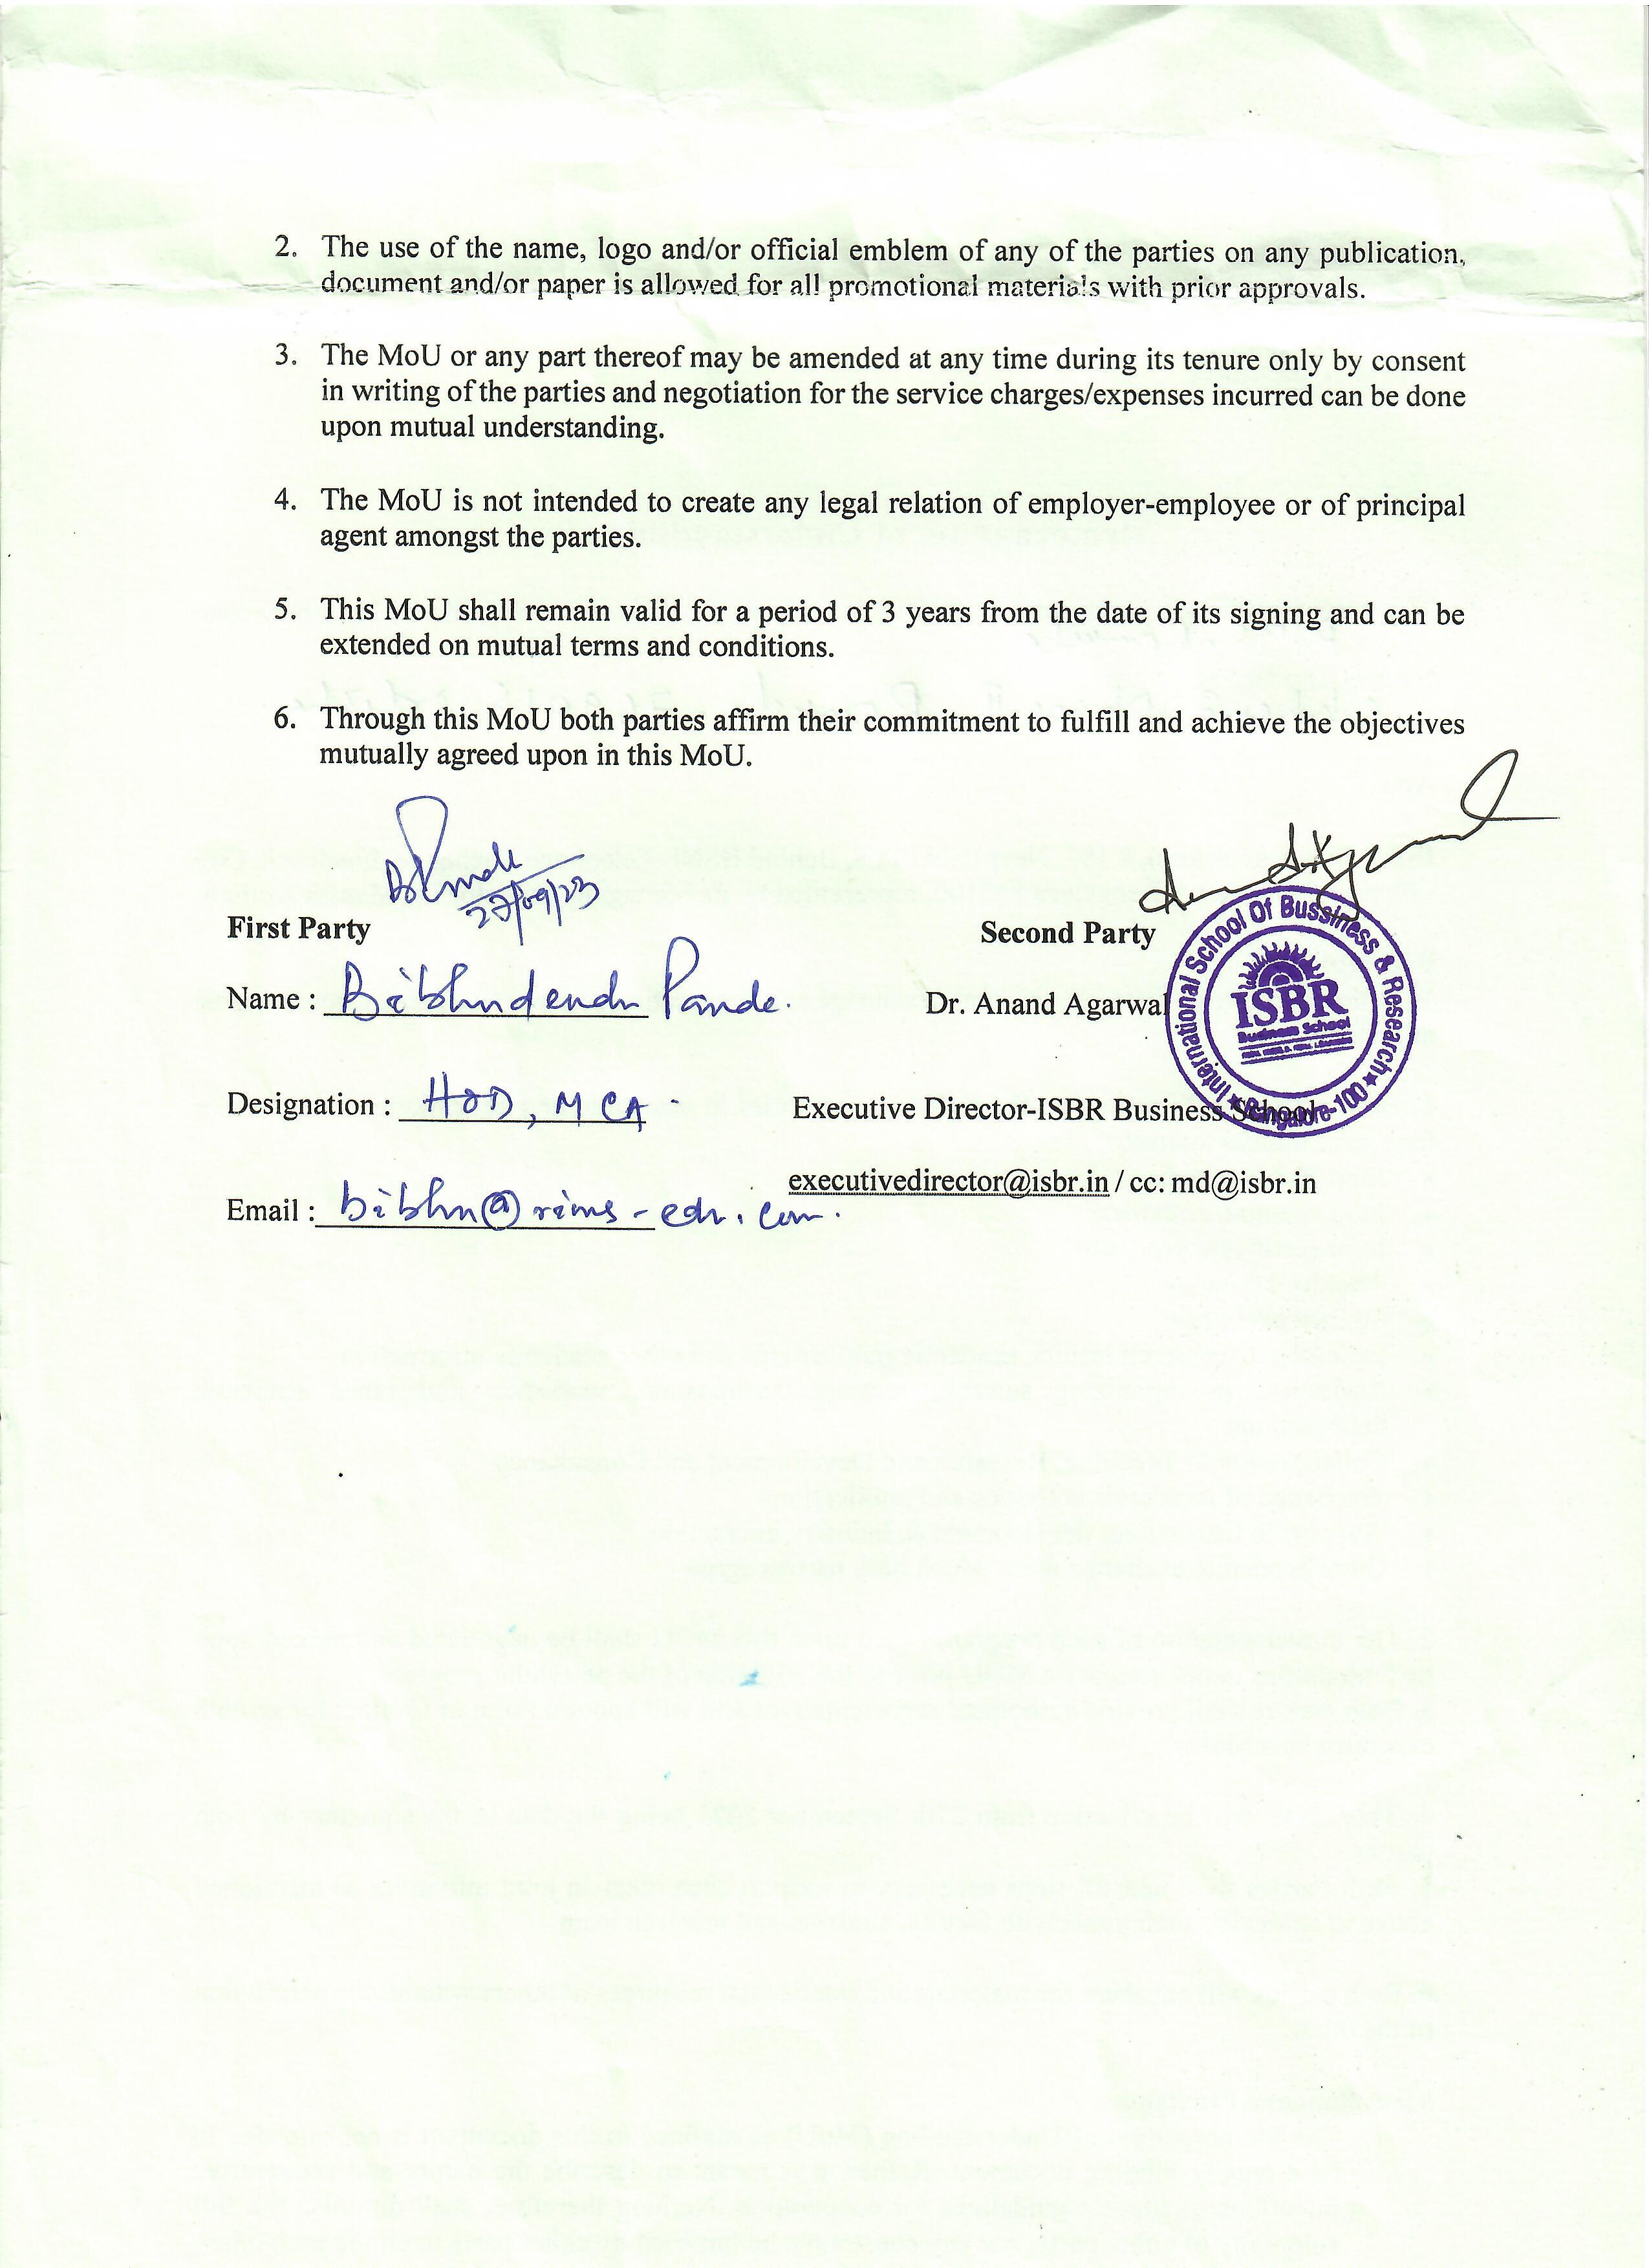 2. The use of the name, logo and/or official emblem of any of the parties on any publication,
document and/or paper is allowed for all promotional materials with prior approvals.
3. The MoU or any part thereof may be amended at any time during its tenure only by consent
in writing of the parties and negotiation for the service charges/expenses incurred can be done
upon mutual understanding.
4. The MoU is not intended to create any legal relation of employer-employee or of principal
agent amongst the parties.
5. This MoU shall remain valid for a period of 3 years from the date of its signing and can be
extended on mutual terms and conditions.
6. Through this MoU both parties affirm their commitment to fulfill and achieve the objectives
mutually agreed upon in this MoU.
27/09/23
First Party
Name : Bibhudendu Pande.
Designation : HOD, MCA
Email : bibhu@rims-edu.com.
Second Party
Dr. Anand Agarwal
Executive Director-ISBR Business School
executivedirector@isbr.in / cc: md@isbr.in
International School Of Bussiness & Research
★ Bangalore-100 ★
ISBR
Business School